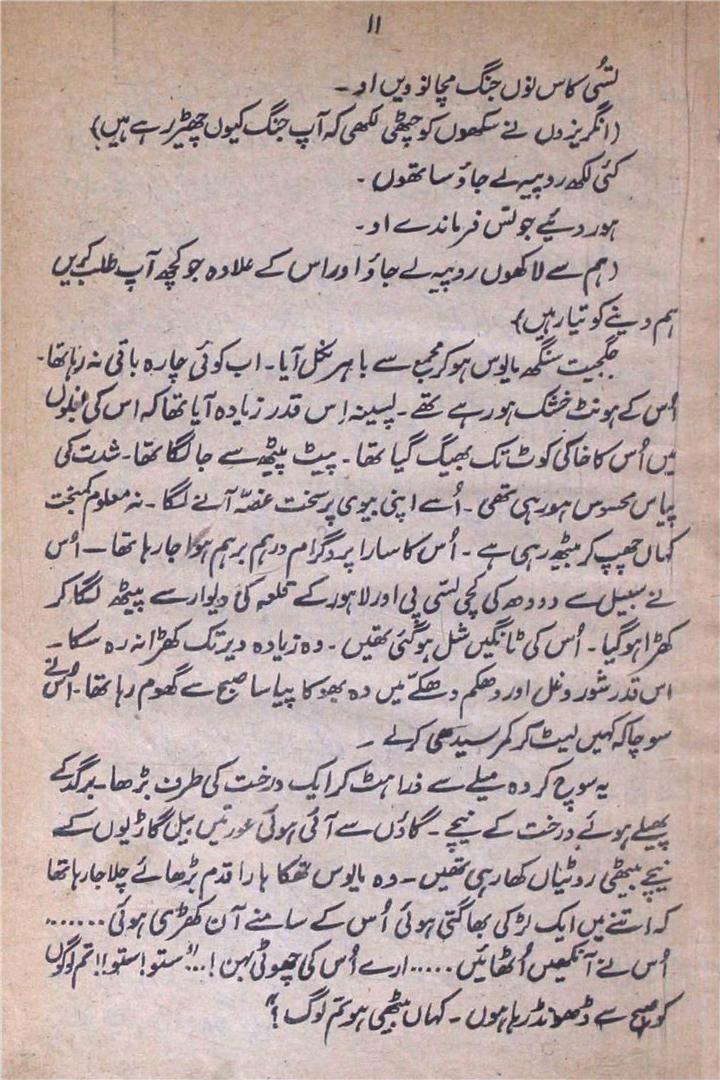 ۱۱
تسُی کاس نوں جنگ مچانو دیں او۔
(انگریزوں نے سکھوں کو چٹھی لکھی کہ آپ جنگ کیوں چھیڑ رہے ہیں)
کئی لکھ روپیہ لے جاؤ ساتھوں ۔
ہور دئیے جو تس فرماندے او۔
(ہم سے لاکھوں روپیہ لے جاؤ اور اس کے علاوہ جو کچھ آپ طلب کریں
ہم دینے کو تیار ہیں)
جگجیت سنگھ مایوس ہو کر مجمع سے باہر نکل آیا۔ اب کوئی چارہ باقی نہ رہا تھا۔
اُس کے ہونٹ خشک ہو رہے تھے۔ پسینہ اِس قدر زیادہ آیا تھا کہ اس کی بغلوں
میں اُس کا خاکی کوٹ تک بھیگ گیا تھا۔ پیٹ پیٹھ سے جا لگا تھا۔ شدت کی
پیاس محسوس ہو رہی تھی ۔ اُسے اپنی بیوی پر سخت غصّہ آنے لگا ۔ نہ معلوم کمبخت
کہاں چھپ کر بیٹھ رہی ہے ۔ اُس کا سارا پروگرام درہم برہم ہوا جا رہا تھا — اُس
نے سبیل سے دودھ کی کچی لسّی پی اور لاہور کے قلعہ کی دیوار سے پیٹھ لگا کر
کھڑا ہو گیا ۔ اُس کی ٹانگیں شل ہو گئی تھیں ۔ وہ زیادہ دیر تک کھڑا نہ رہ سکا —
اس قدر شور و غل اور دھکم دھکّے میں وہ بھوکا پیاسا صبح سے گھوم رہا تھا۔ اُس نے
سوچا کہ کہیں لیٹ کر کمر سیدھی کرلے —
یہ سوچ کر وہ میلے سے ذرا ہٹ کر ایک درخت کی طرف بڑھا۔ برگد کے
پھیلے ہوئے درخت کے نیچے ۔ گاؤں سے آئی ہوئی عورتیں بیل گاڑیوں کے
نیچے بیٹھی روٹیاں کھا رہی تھیں — وہ مایوس تھکا ہارا قدم بڑھائے چلا جا رہا تھا
کہ اتنے میں ایک لڑکی بھاگتی ہوئی اُس کے سامنے آن کھڑی ہوئی .......
اُس نے آنکھیں اُٹھائیں ..... ارے اُس کی چھوٹی بہن !... "ستو! ستو!! تم لوگوں
کو صبح سے ڈھونڈ رہا ہوں ۔ کہاں بیٹھی ہو تم لوگ ؟"